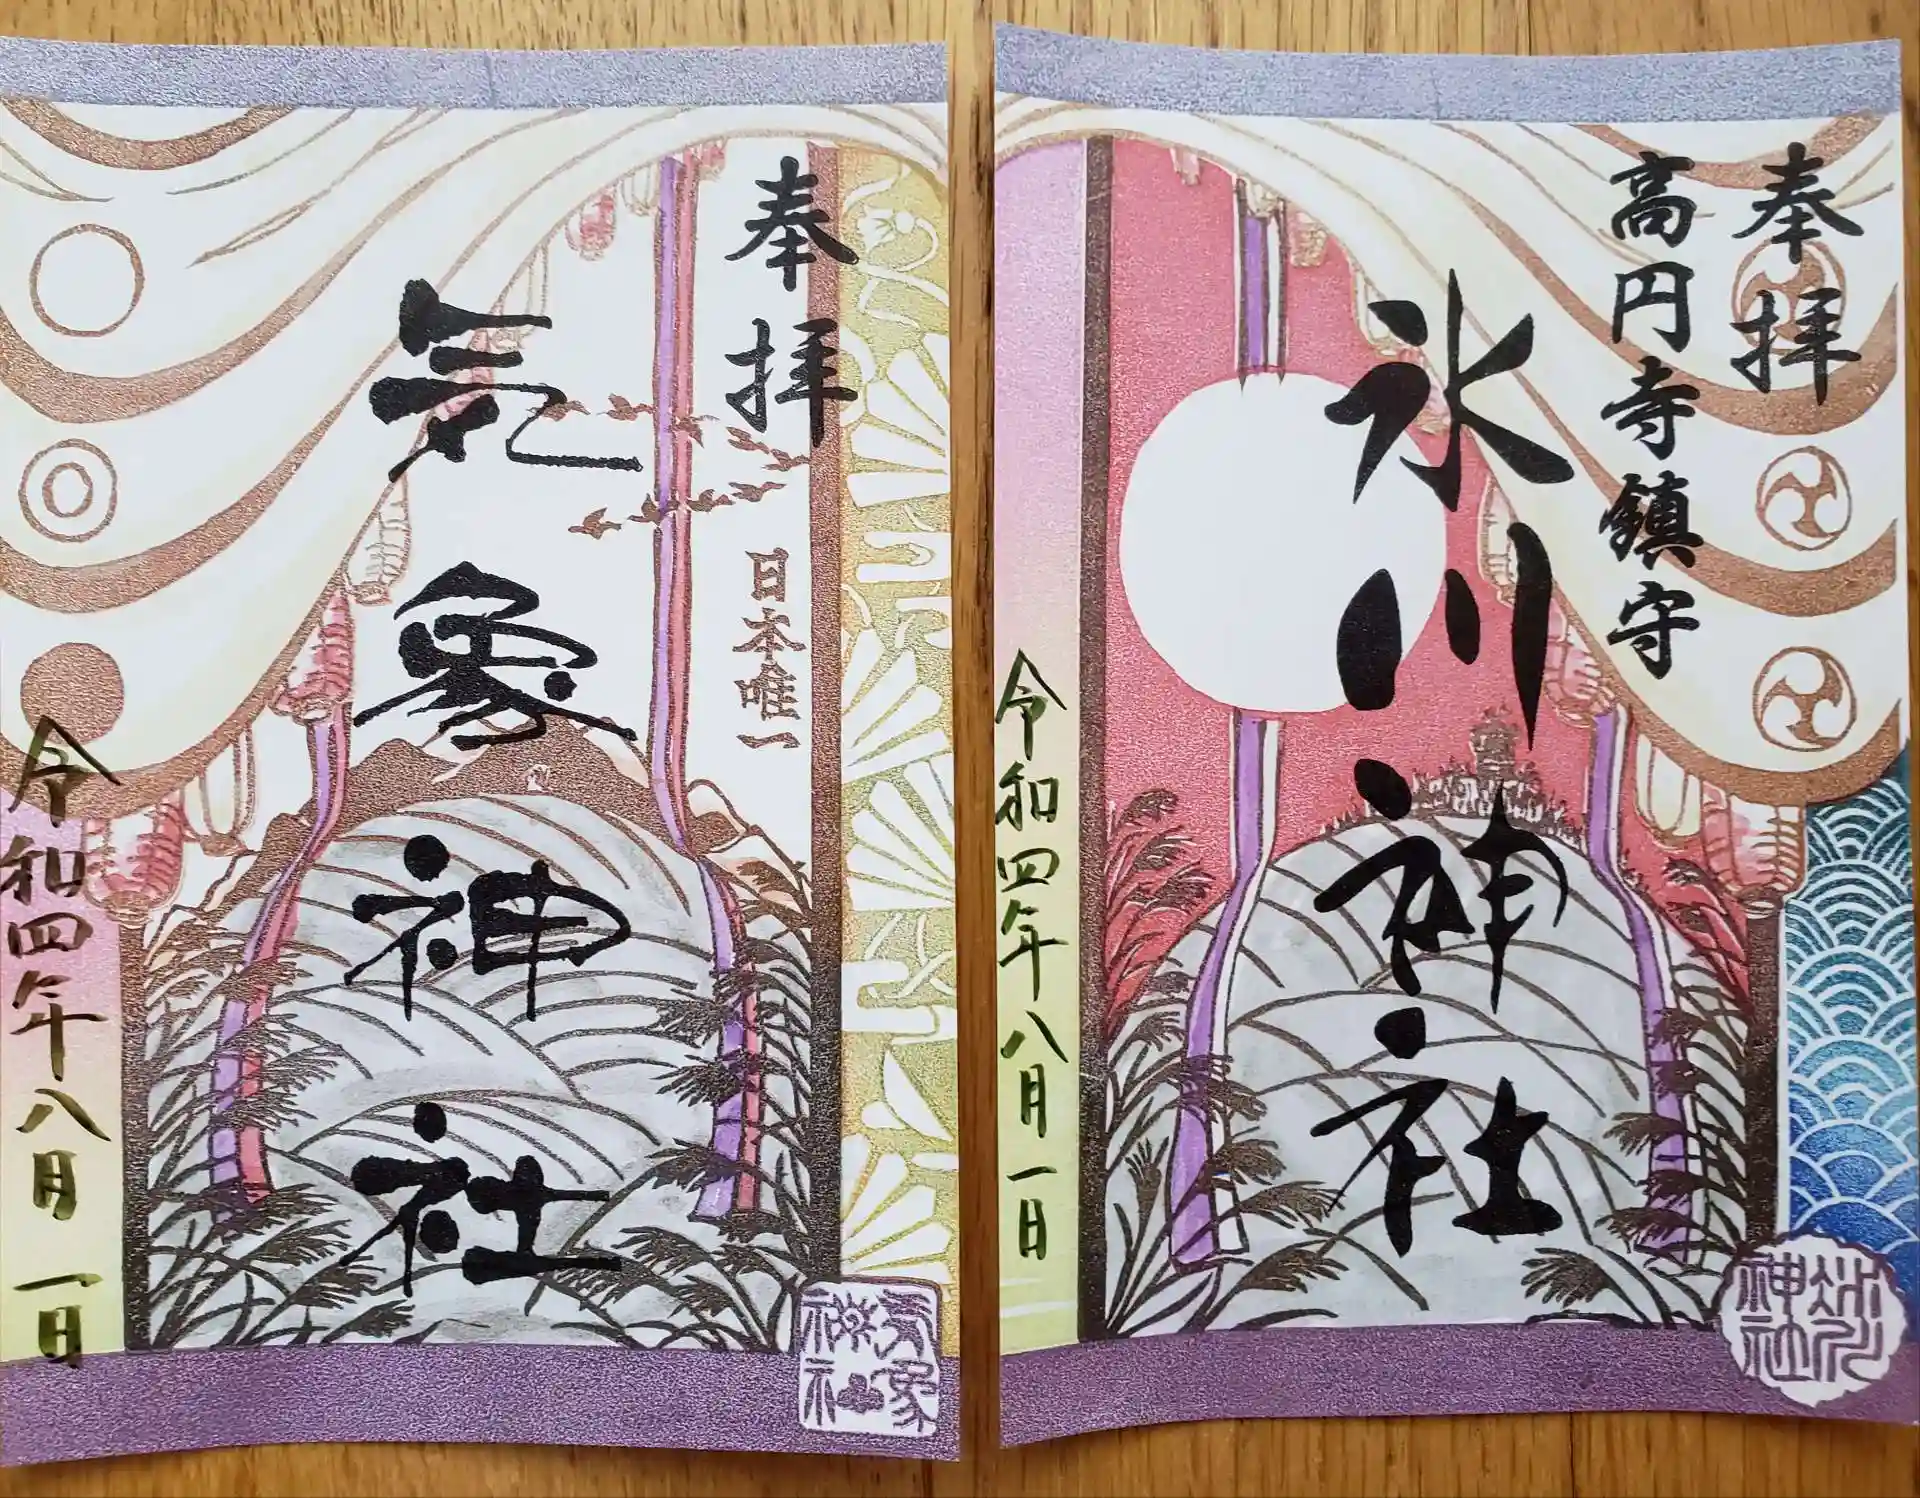 奉拝
日本唯一
気象神社
令和四年八月一日
気象神社
奉拝
高円寺鎮守
氷川神社
令和四年八月一日
氷川神社